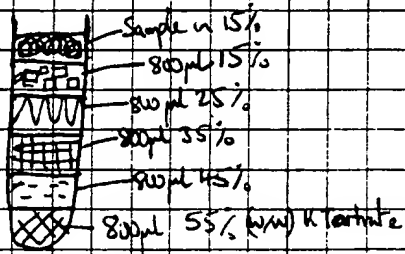 Sample in 15%
800µl 15%
800µl 25%
800µl 35%
800µl 45%
800µl 55% (w/w) K Tartrate